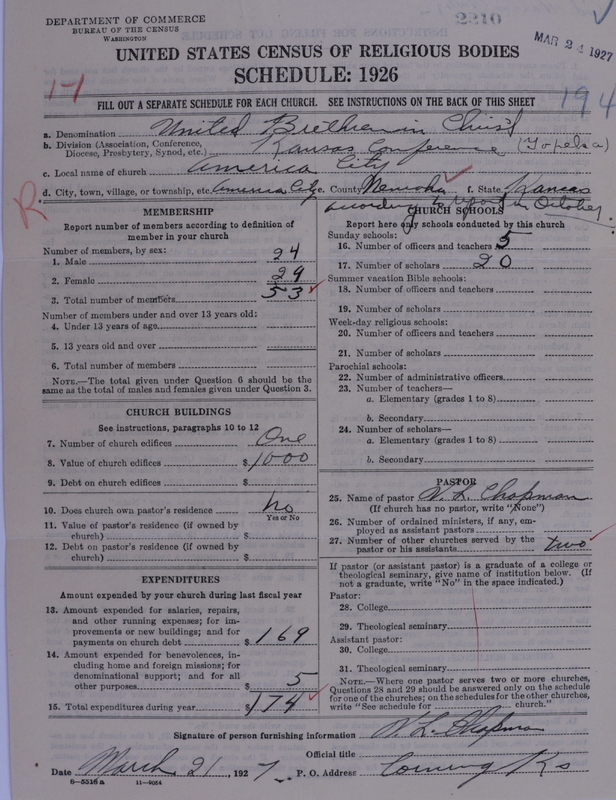 DEPARTMENT OF COMMERCE
BUREAU OF THE CENSUS
WASHINGTON
2210
MAR 24 1927
UNITED STATES CENSUS OF RELIGIOUS BODIES
SCHEDULE: 1926
17
194
FILL OUT A SEPARATE SCHEDULE FOR EACH CHURCH. SEE INSTRUCTIONS ON THE BACK OF THIS SHEET
a. Denomination United Brethren in Christ
b. Division (Association, Conference, Diocese, Presbytery, Synod, etc.) Kansas Conference (Topeka)
c. Local name of church America City
d. City, town, village, or township, etc. America City e. County Nemaha f. State Kansas
according to report in October.
R
MEMBERSHIP
Report number of members according to definition of
member in your church
Number of members, by sex:
1. Male 24
2. Female 29
3. Total number of members 53
Number of members under and over 13 years old:
4. Under 13 years of age
5. 13 years old and over
6. Total number of members
NOTE.—The total given under Question 6 should be the
same as the total of males and females given under Question 3.
CHURCH BUILDINGS
See instructions, paragraphs 10 to 12
7. Number of church edifices One
8. Value of church edifices $1000
9. Debt on church edifices $
10. Does church own pastor's residence No
Yes or No
11. Value of pastor's residence (if owned by
church) $
12. Debt on pastor's residence (if owned by
church) $
EXPENDITURES
Amount expended by your church during last fiscal year
13. Amount expended for salaries, repairs,
and other running expenses; for im-
provements or new buildings; and for
payments on church debt $169
14. Amount expended for benevolences, in-
cluding home and foreign missions; for
denominational support; and for all
other purposes $5
15. Total expenditures during year $174
CHURCH SCHOOLS
Report here only schools conducted by this church
Sunday schools:
16. Number of officers and teachers 5
17. Number of scholars 20
Summer vacation Bible schools:
18. Number of officers and teachers
19. Number of scholars
Week-day religious schools:
20. Number of officers and teachers
21. Number of scholars
Parochial schools:
22. Number of administrative officers
23. Number of teachers—
a. Elementary (grades 1 to 8)
b. Secondary
24. Number of scholars—
a. Elementary (grades 1 to 8)
b. Secondary
PASTOR
25. Name of pastor V. L. Chapman
(If church has no pastor, write "None")
26. Number of ordained ministers, if any, em-
ployed as assistant pastors
27. Number of other churches served by the
pastor or his assistants two
If pastor (or assistant pastor) is a graduate of a college or
theological seminary, give name of institution below. (If
not a graduate, write "No" in the space indicated.)
Pastor:
28. College
29. Theological seminary
Assistant pastor:
30. College
31. Theological seminary
NOTE.—Where one pastor serves two or more churches,
Questions 28 and 29 should be answered only on the schedule
for one of the churches; on the schedules for the other churches,
write "See schedule for church."
Signature of person furnishing information V. L. Chapman
Official title
Date March 21, 1927. P. O. Address Corning Ks
8—5516 a 11—9664